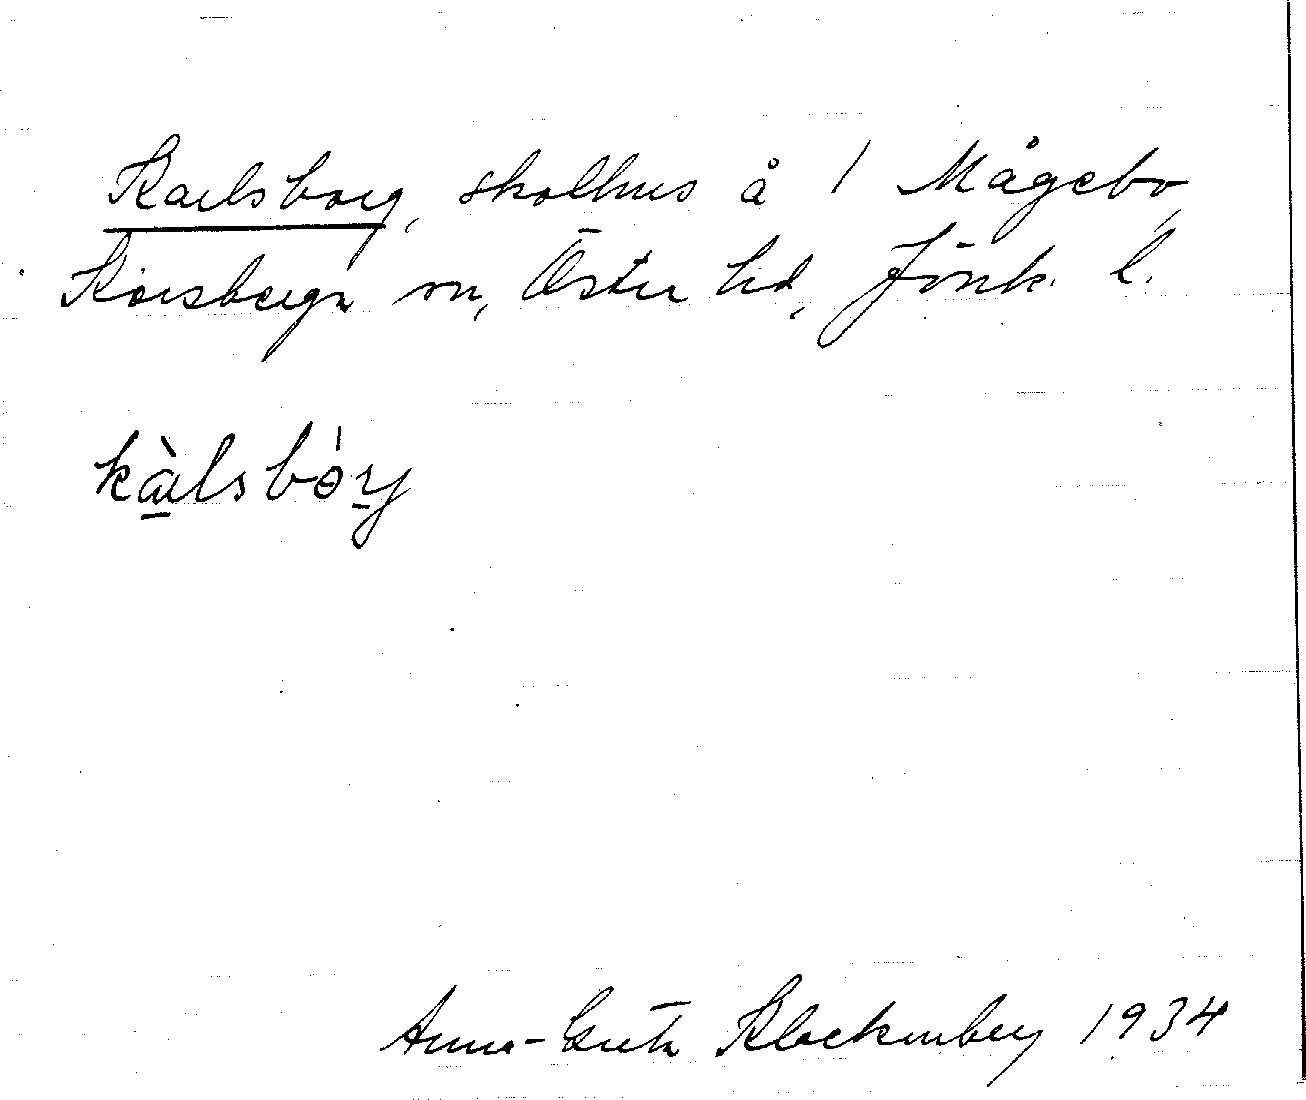 Karlsborg, skolhus å 1 Mågebo,
Korsberga sn, Östra hd, Jönk. l.
kàlsbórj
Anna-Greta Klockenberg 1934